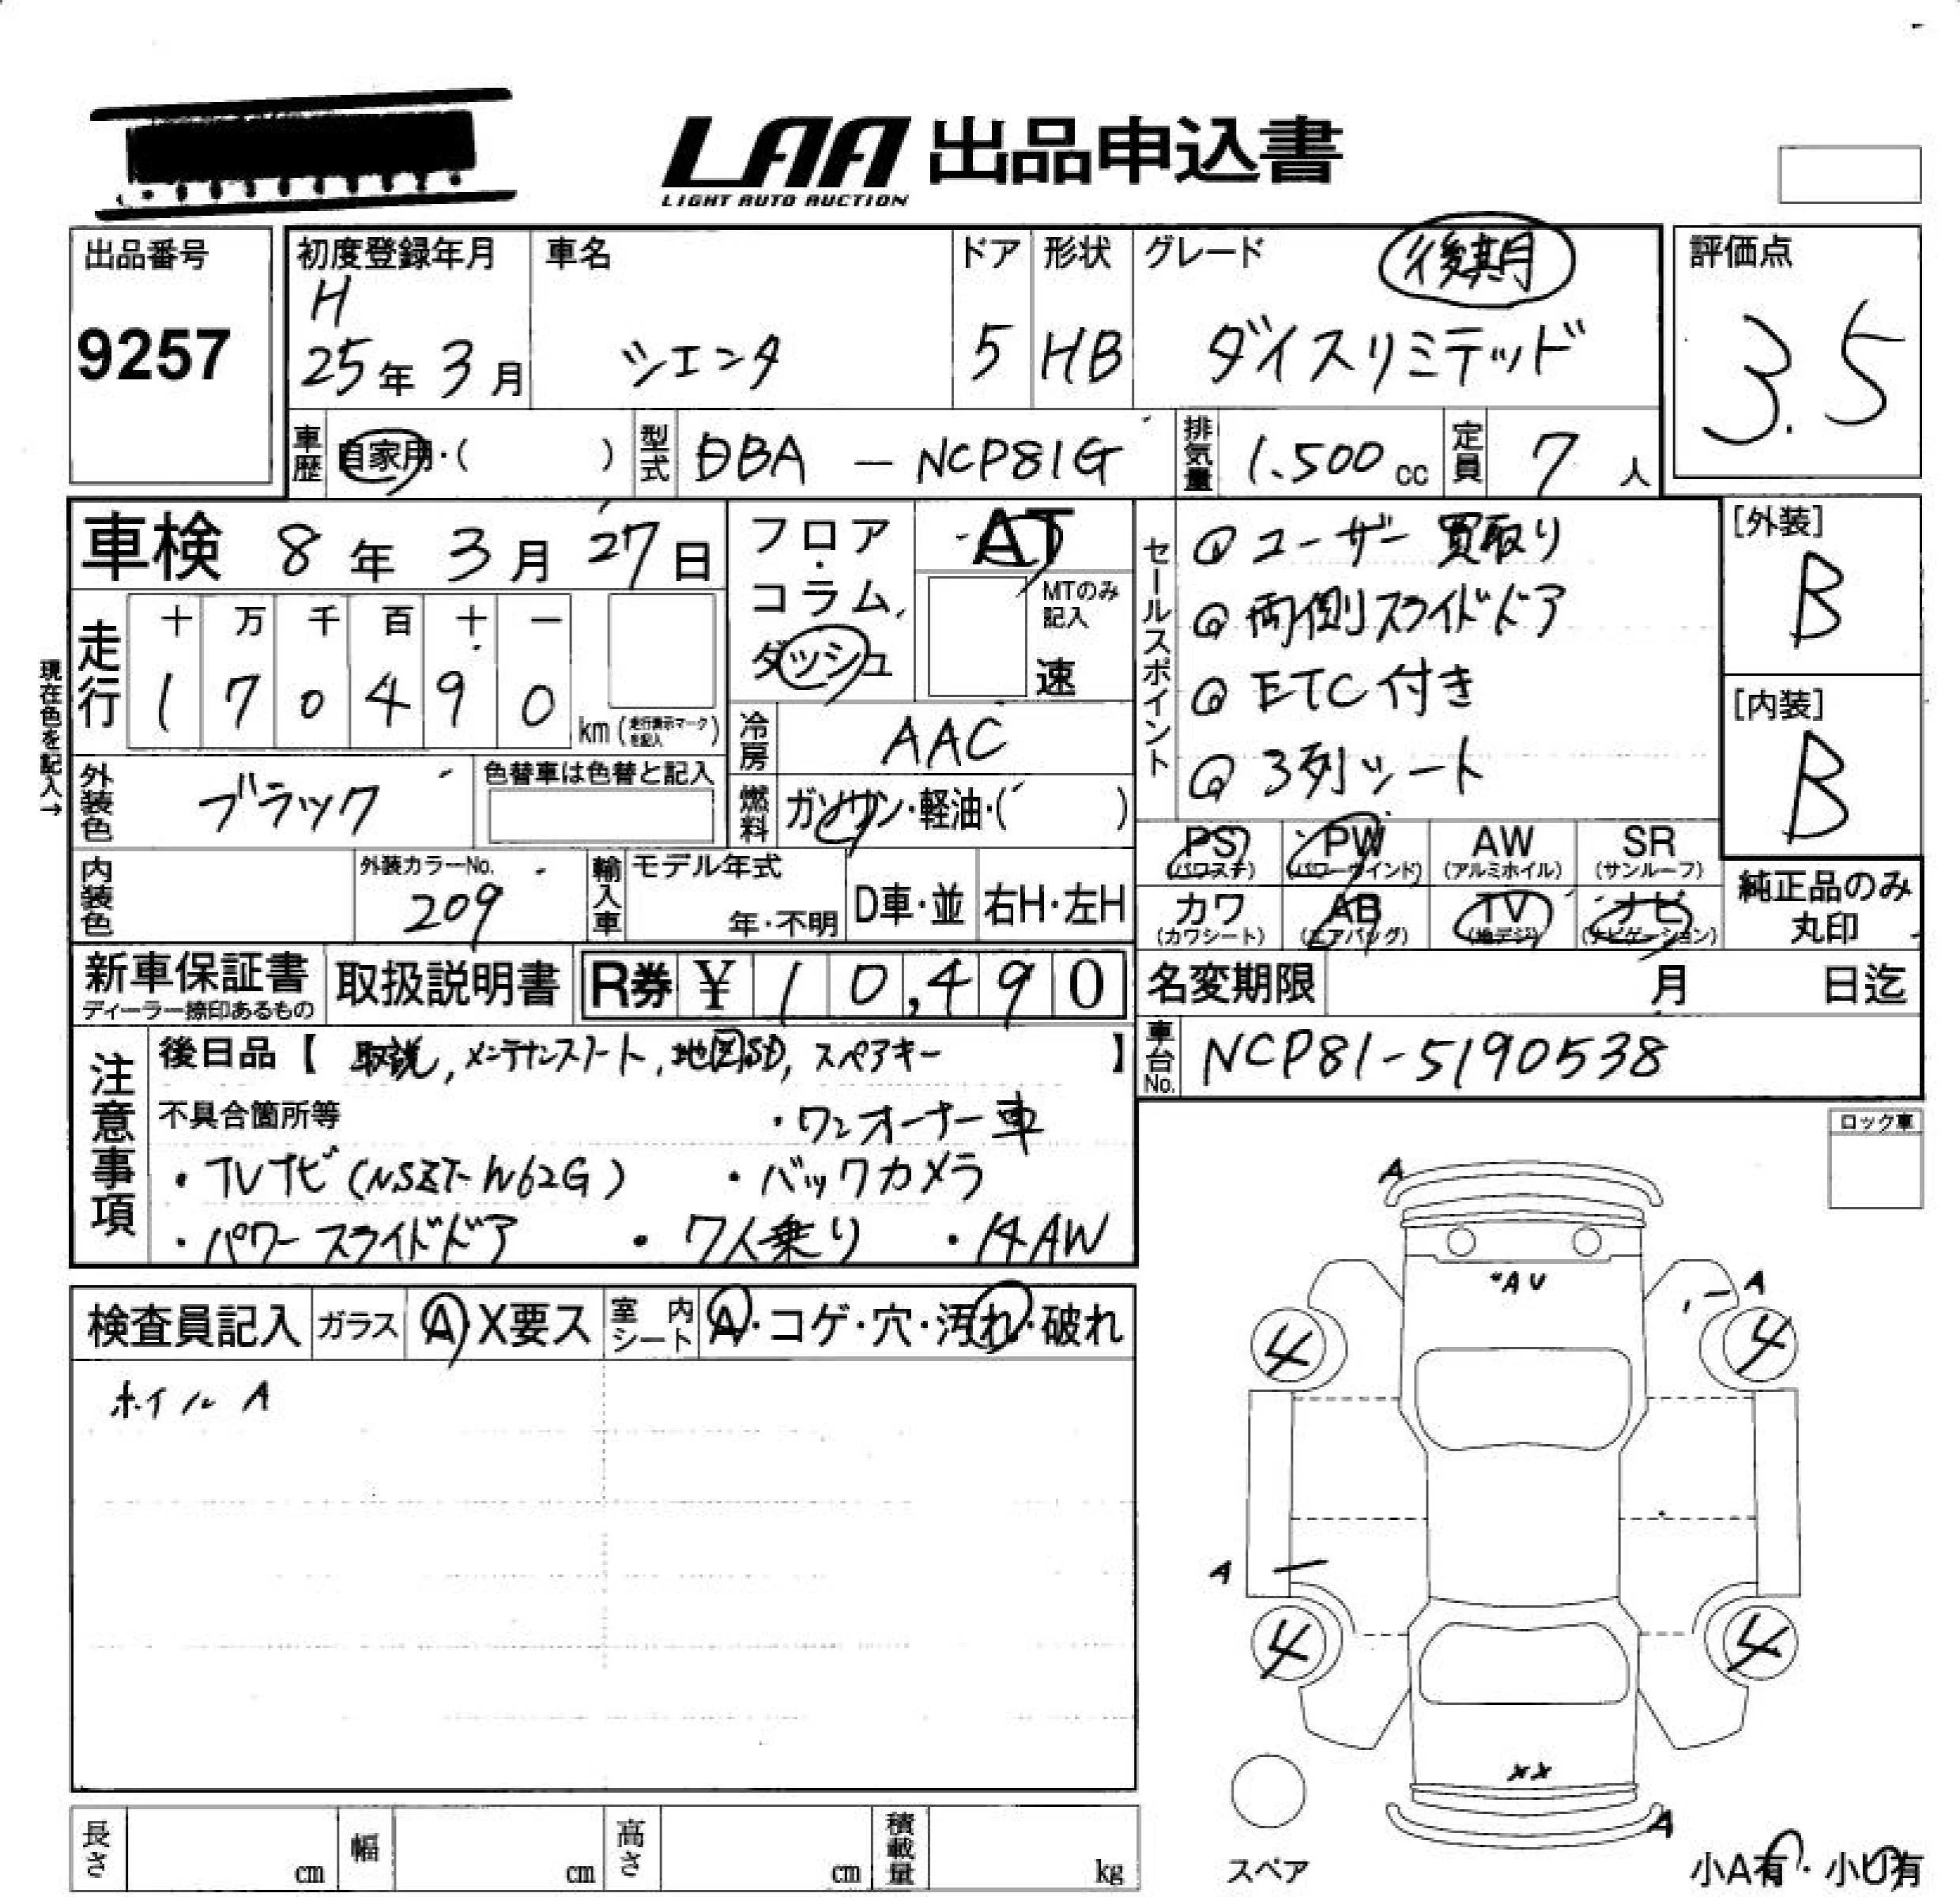 LAA 出品申込書
LIGHT AUTO AUCTION
出品番号
9257
初度登録年月
H
25年 3月
車名
シエンタ
ドア
5
形状
HB
グレード
後期
ダイスリミテッド
評価点
3.5
車歴
自家用・( )
型式
DBA - NCP81G
排気量
1.500 cc
定員
7 人
車検 8年 3月 27日
フロア・コラム
ダッシュ
AT
MTのみ
記入
速
現在色を記入→
走行
十 万 千 百 十 一
1 7 0 4 9 0
km (走行表示マークを記入)
冷房
AAC
燃料
ガソリン・軽油・( )
外装色
ブラック
色替車は色替と記入
内装色
外装カラーNo.
209
輸入車
モデル年式
年・不明
D車・並
右H・左H
セールスポイント
@ ユーザー買取り
@ 両側スライドドア
@ ETC付き
@ 3列シート
[外装]
B
[内装]
B
PS
(パワステ)
PW
(パワーウインド)
AW
(アルミホイル)
SR
(サンルーフ)
カワ
(カワシート)
AB
(エアバッグ)
TV
(地デジ)
ナビ
(ナビゲーション)
純正品のみ
丸印
新車保証書
ディーラー捺印あるもの
取扱説明書
R券 ¥ 10,490
名変期限 月 日迄
車台No.
NCP81-5190538
注意事項
後日品【 取説, メンテナンスノート, 地図SD, スペアキー 】
不具合箇所等
・ワンオーナー車
・TVナビ (NSZT-W62G) ・バックカメラ
・パワースライドドア ・7人乗り ・14AW
ロック車
検査員記入
ガラス
A・X要ス
室内シート
A・コゲ・穴・汚れ・破れ
ホイル A
A
AU
A
4
4
A
4
4
XX
A
スペア
小A有・小U有
長さ cm
幅 cm
高さ cm
積載量 kg